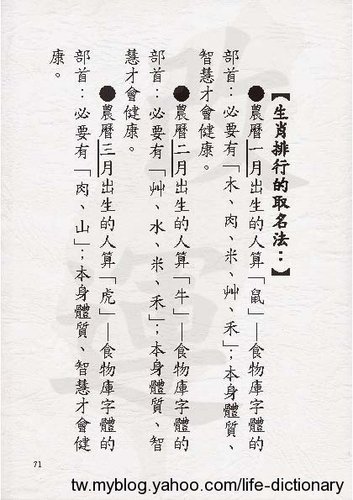 【生肖排行的取名法：】
●農曆一月出生的人算「鼠」—食物庫字體的
部首：必要有「木、肉、米、艸、禾」；本身體質、
智慧才會健康。
●農曆二月出生的人算「牛」—食物庫字體的
部首：必要有「艸、水、米、禾」；本身體質、智
慧才會健康。
●農曆三月出生的人算「虎」—食物庫字體的
部首：必要有「肉、山」；本身體質、智慧才會健
康。
71
tw.myblog.yahoo.com/life-dictionary